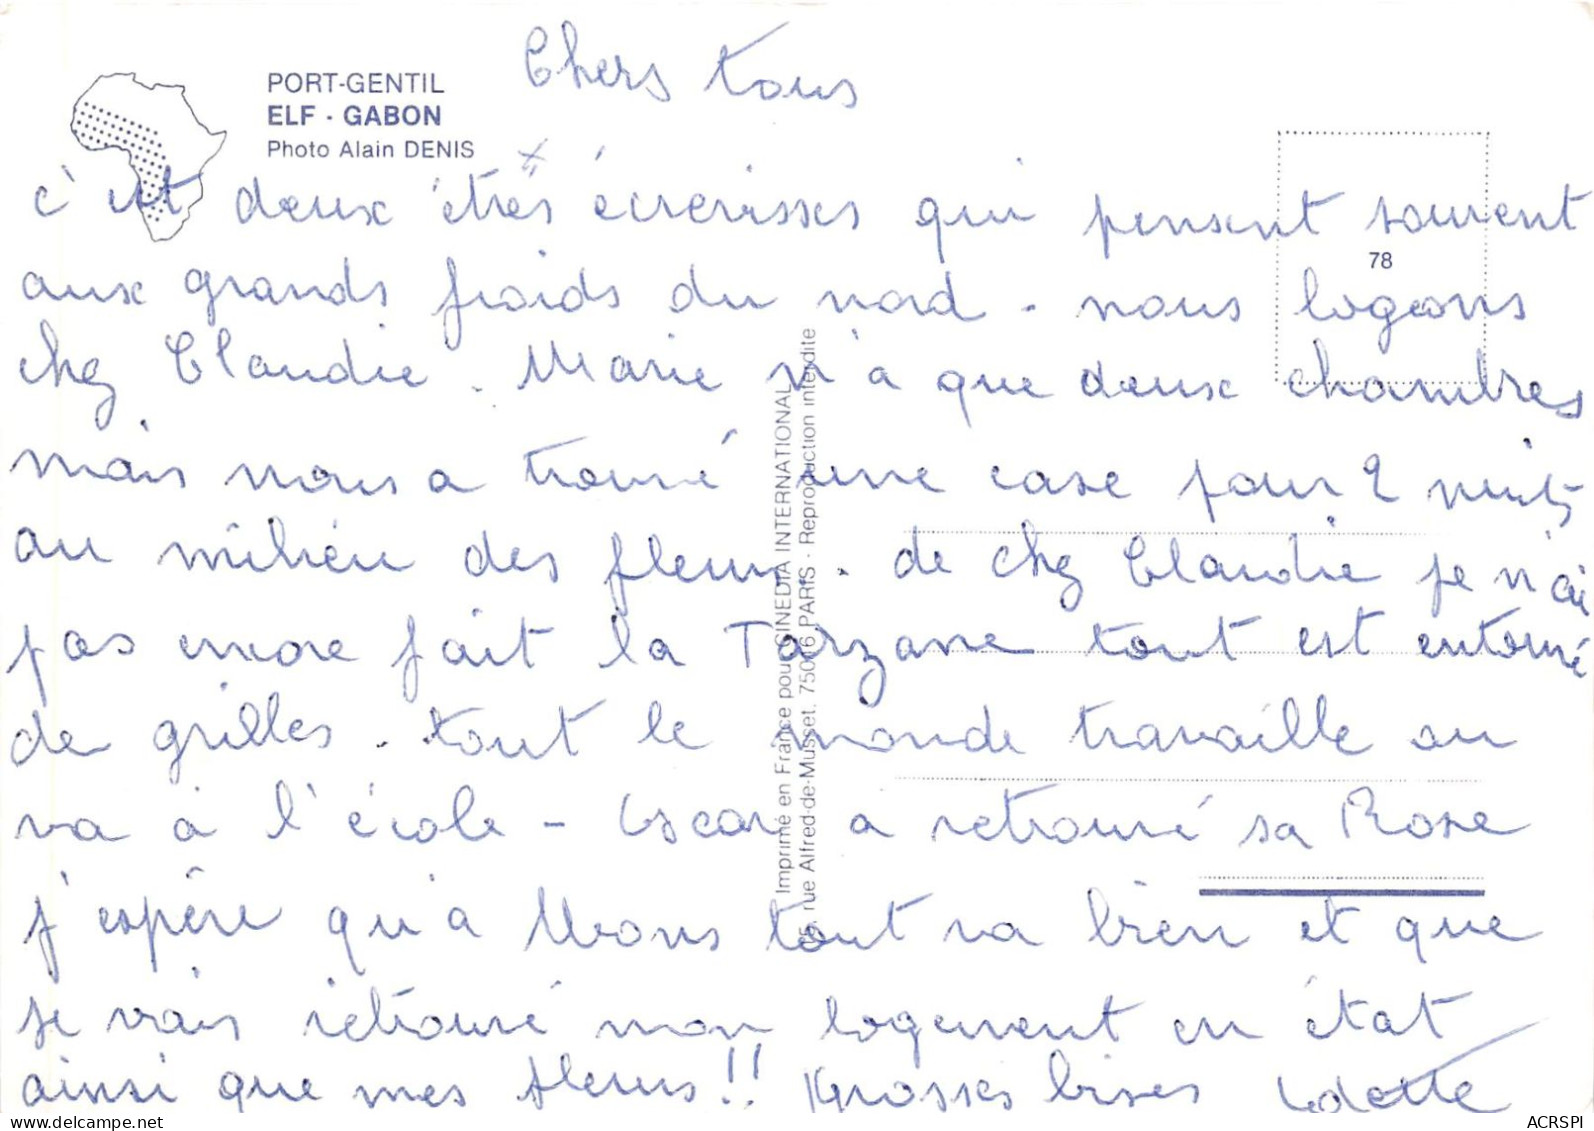 Chers tous
PORT-GENTIL
ELF - GABON
Photo Alain DENIS
c'est deux êtres écrevisses qui pensent souvent
78
aux grands froids du nord - nous logeons
chez Claudie. Marie n'a que deux chambres
mais nous a trouvé une case pour 2 nuits
au milieu des fleurs. de chez Claudie je n'ai
pas encore fait la Tarzane tout est entouré
de grilles. tout le monde travaille ou
va à l'école - Oscar a retrouvé sa Rose
j'espère qu'à Mons tout va bien et que
je vais retrouvé mon logement en état
ainsi que mes fleurs !! Grosses bises Odette
Imprimé en France pour CINEDIA INTERNATIONAL
rue Alfred-de-Musset. 75016 PARIS - Reproduction interdite
ACRSPI